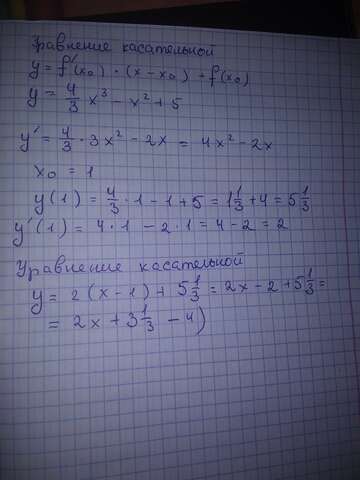 Уравнение касательной
y = f'(x₀) · (x - x₀) + f(x₀)
y = 4/3 x³ - x² + 5
y' = 4/3 · 3x² - 2x = 4x² - 2x
x₀ = 1
y(1) = 4/3 · 1 - 1 + 5 = 1 1/3 + 4 = 5 1/3
y'(1) = 4 · 1 - 2 · 1 = 4 - 2 = 2
Уравнение касательной
y = 2(x - 1) + 5 1/3 = 2x - 2 + 5 1/3 =
= 2x + 3 1/3 - 4)